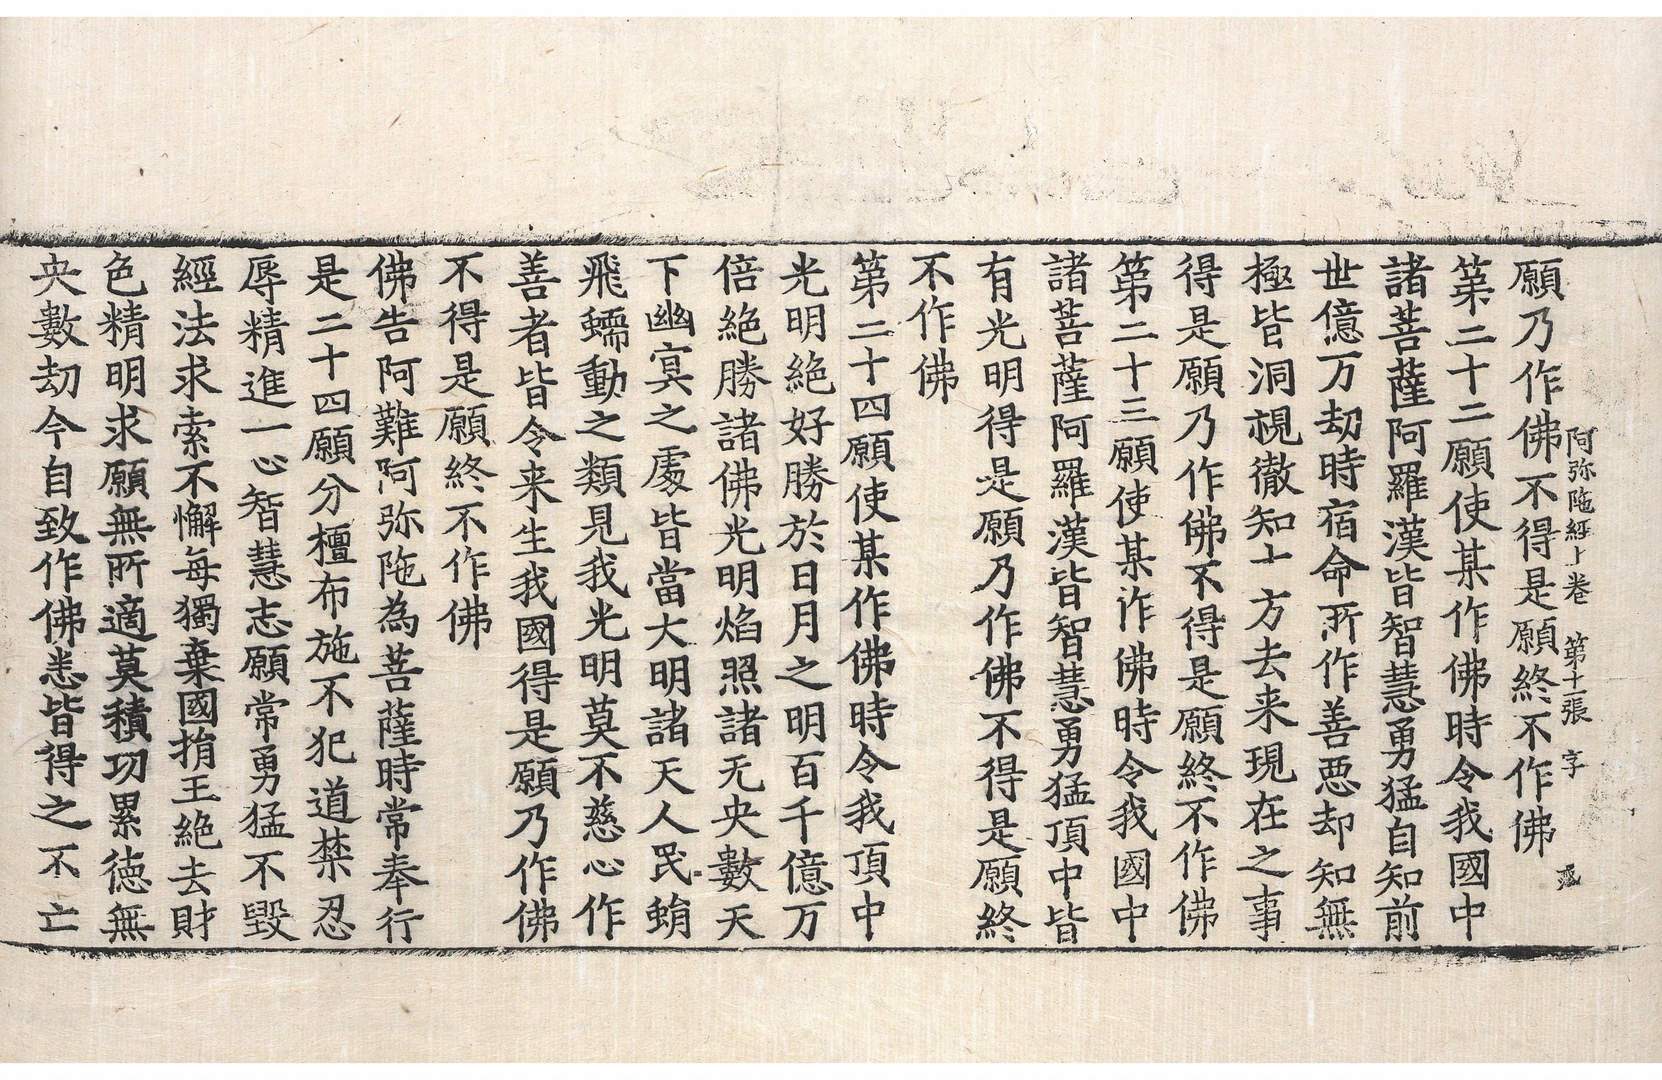 願乃作佛不得是願終不作佛
阿弥陁經上卷 第十二張 字
第二十二願使某作佛時令我國中
諸菩薩阿羅漢皆智慧勇猛自知前
世億万劫時宿命所作善惡却知無
極皆洞視徹知十方去来現在之事
得是願乃作佛不得是願終不作佛
第二十三願使某作佛時令我國中
諸菩薩阿羅漢皆智慧勇猛頂中皆
有光明得是願乃作佛不得是願終
不作佛
第二十四願使某作佛時令我頂中
光明絶好勝於日月之明百千億万
倍絶勝諸佛光明焰照諸无央數天
下幽冥之處皆當大明諸天人民蜎
飛蠕動之類見我光明莫不慈心作
善者皆令来生我國得是願乃作佛
不得是願終不作佛
佛告阿難阿弥陁為菩薩時常奉行
是二十四願分檀布施不犯道禁忍
辱精進一心智慧志願常勇猛不毀
經法求索不懈每獨棄國捐王絶去財
色精明求願無所適莫積功累德無
央數劫今自致作佛悉皆得之不亡